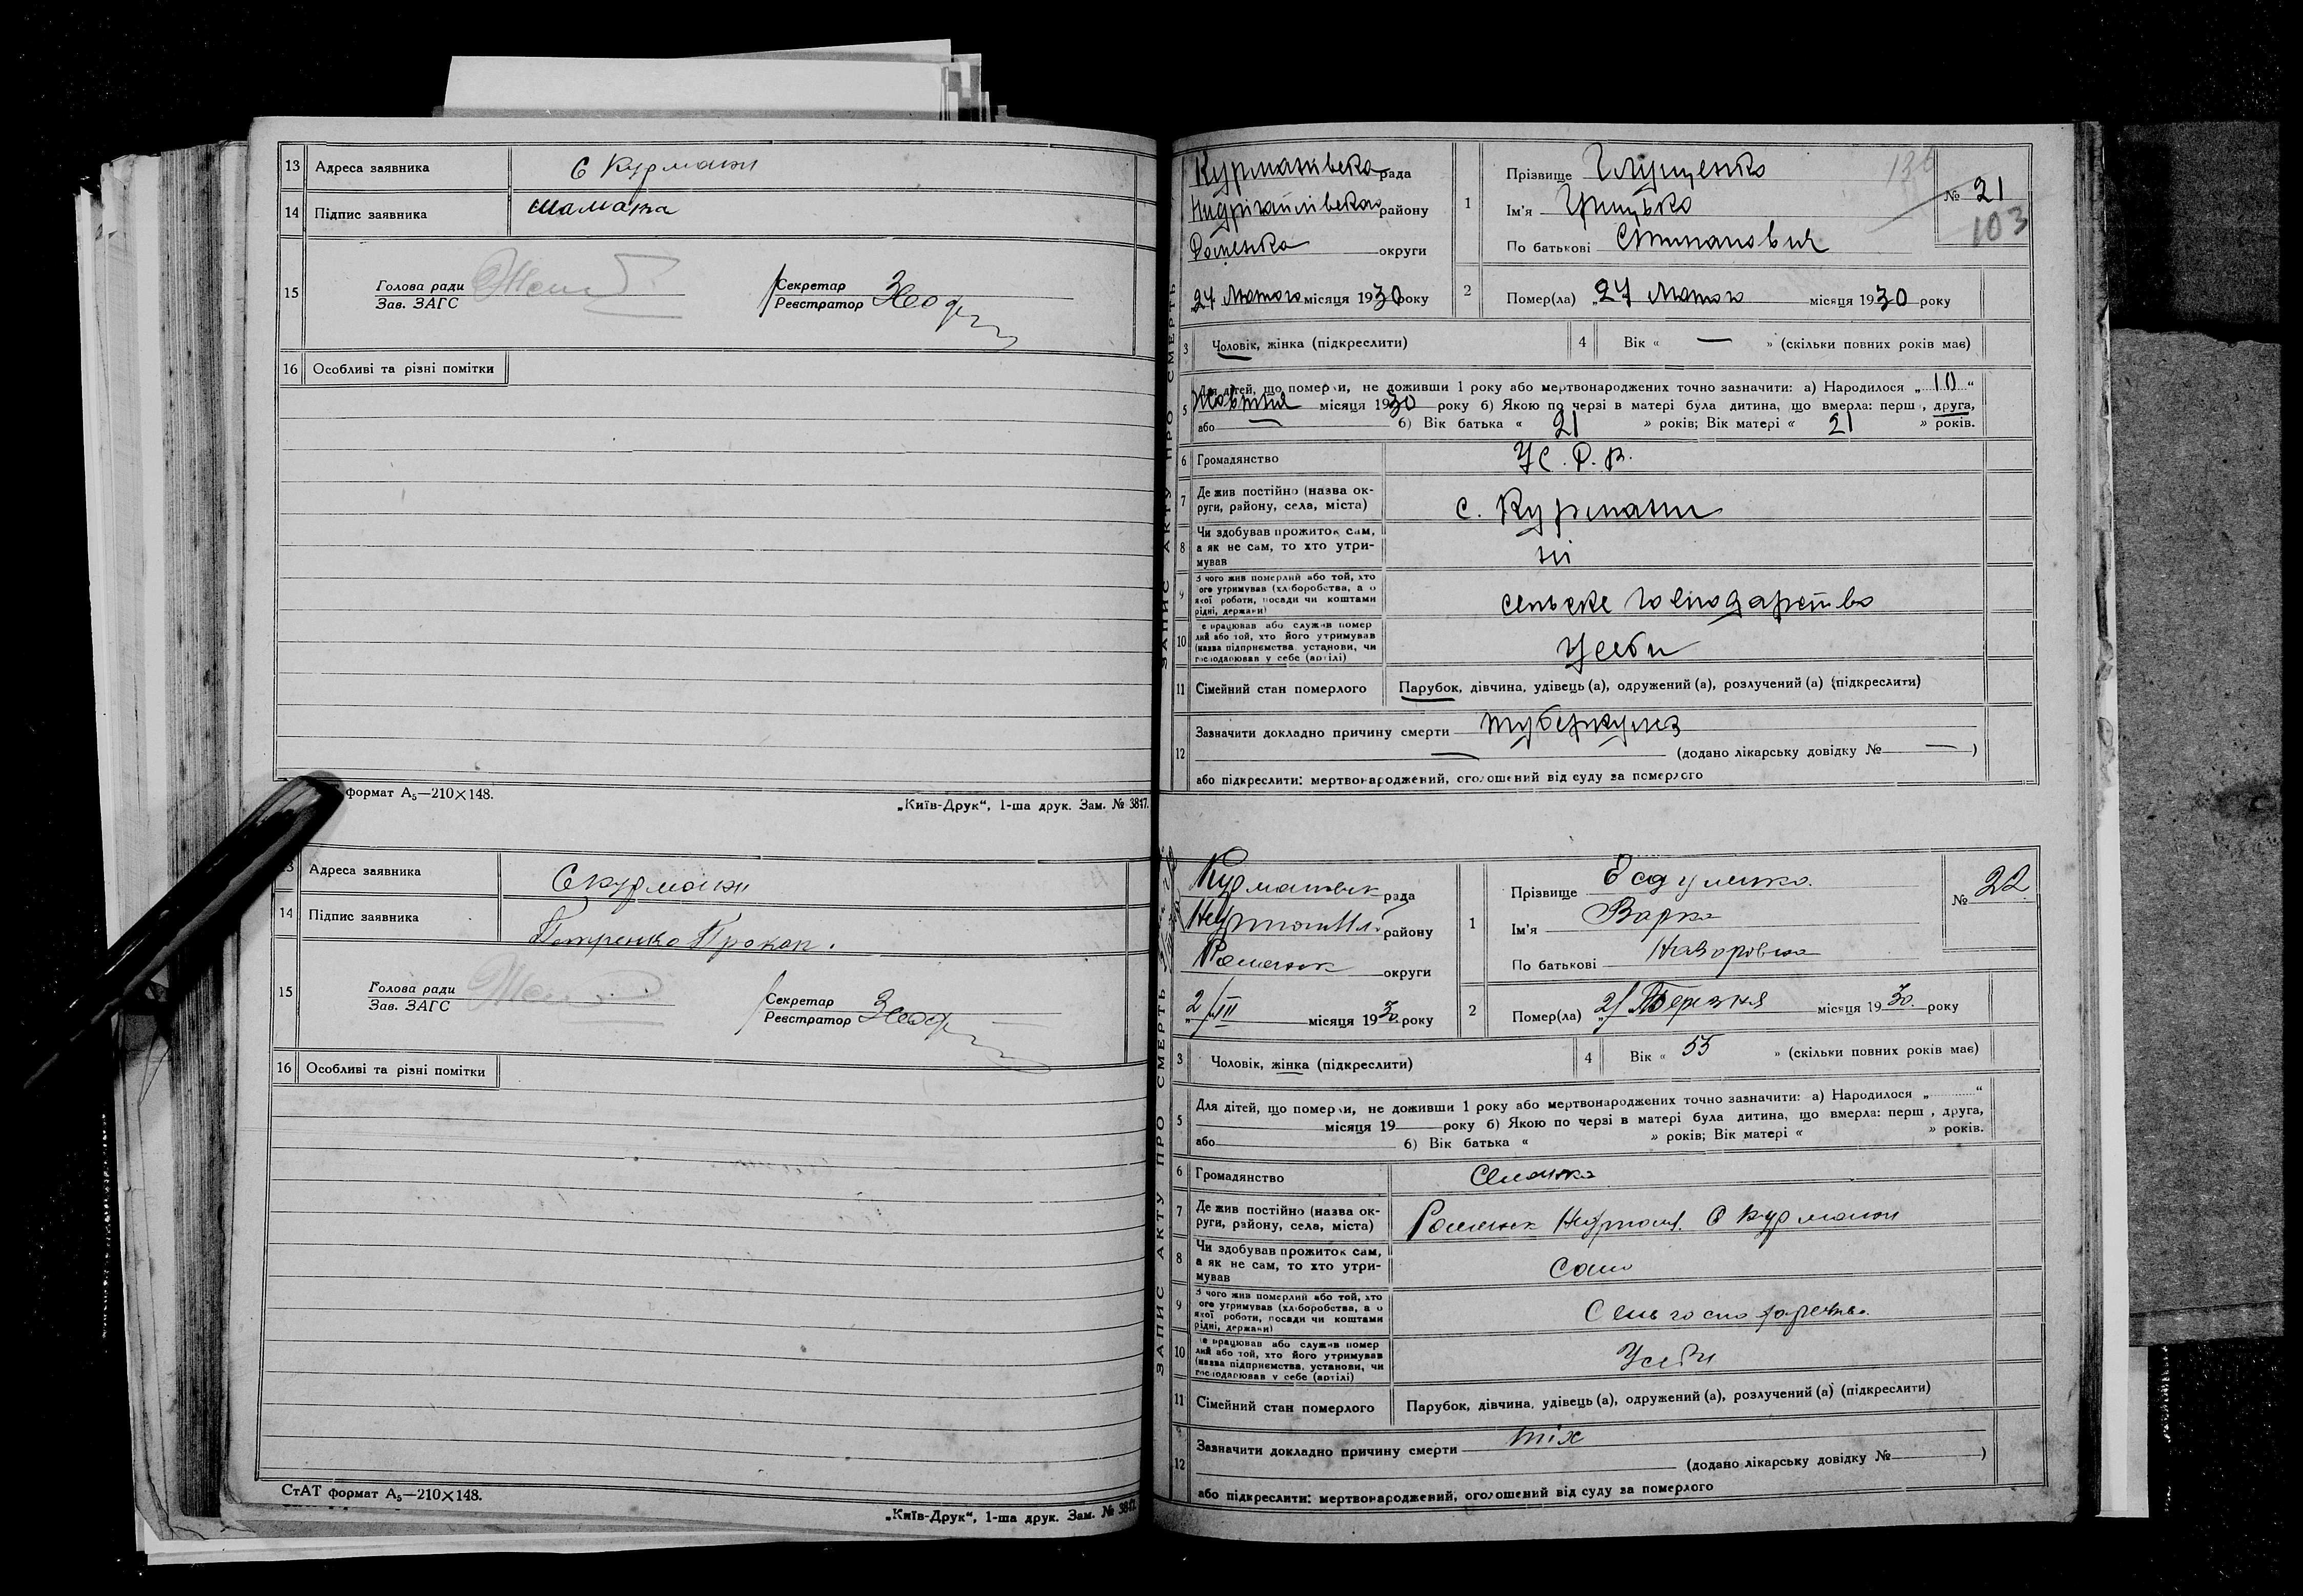 13 Адреса заявника С Курмани
14 Підпис заявника Шамата
15 Голова ради
Зав. ЗАГС
Секретар
Реєстратор
16 Особливі та різні помітки
формат А5—210×148.
„Київ-Друк“, 1-ша друк. Зам. № 3847.
13 Адреса заявника С Курмани
14 Підпис заявника Петренко Прокоп.
15 Голова ради
Зав. ЗАГС
Секретар
Реєстратор
16 Особливі та різні помітки
СтАТ формат А5—210×148.
„Київ-Друк“, 1-ша друк. Зам. № 3847.
ЗАПИС АКТУ ПРО СМЕРТЬ
Курманівська рада
району
Роменська округи
„27 Лютого місяця 1930 року
1 Прізвище Глущенко
Ім'я Грицько
По батькові Степанович
№ 21
103
2 Помер(ла) „27 Лютого місяця 1930 року
3 Чоловік, жінка (підкреслити)
4 Вік « — » (скільки повних років має)
5 Для дітей, що померли, не доживши 1 року або мертвонароджених точно зазначити: а) Народилося „10“
Жовтня місяця 1930 року б) Якою по черзі в матері була дитина, що вмерла: перш , друга,
або — 6) Вік батька « 21 » років; Вік матері « 21 » років.
6 Громадянство У.С.Р.Р.
7 Де жив постійно (назва ок-
руги, району, села, міста) с. Курмани
8 Чи здобував прожиток сам,
а як не сам, то хто утри-
мував ні
9 З чого жив померлий або той, хто
ого утримував (хліборобства, а о
якої роботи, посади чи коштами
рідні, держави) сельске господарство
10 е працював або служив помер
лий або той, хто його утримував
(назва підприємства, установи, чи
господарював у себе (артілі) Усеби
11 Сімейний стан померлого Парубок, дівчина, удівець (а), одружений (а), розлучений (а) (підкреслити)
12 Зазначити докладно причину смерти туберкулез
— (додано лікарську довідку № — )
або підкреслити: мертвонароджений, оголошений від суду за померлого
ЗАПИС АКТУ ПРО СМЕРТЬ
рада
району
Роменск округи
„2/III місяця 1930 року
1 Прізвище
Ім'я Варка
По батькові
№ 22
2 Помер(ла) „2/ Березня місяця 1930. року
3 Чоловік, жінка (підкреслити)
4 Вік « 55 » (скільки повних років має)
5 Для дітей, що померли, не доживши 1 року або мертвонароджених точно зазначити: а) Народилося „ “
місяця 19 року б) Якою по черзі в матері була дитина, що вмерла: перш , друга,
або 6) Вік батька « » років; Вік матері « » років.
6 Громадянство Селянка
7 Де жив постійно (назва ок-
руги, району, села, міста) Роменск С Курмани
8 Чи здобував прожиток сам,
а як не сам, то хто утри-
мував Сама
9 З чого жив померлий або той, хто
ого утримував (хліборобства, а о
якої роботи, посади чи коштами
рідні, держави) Сель господарство.
10 е працював або служив помер
лий або той, хто його утримував
(назва підприємства, установи, чи
господарював у себе (артілі) Усеби
11 Сімейний стан померлого Парубок, дівчина, удівець (а), одружений (а), розлучений (а) (підкреслити)
12 Зазначити докладно причину смерти тіх
(додано лікарську довідку № )
або підкреслити: мертвонароджений, оголошений від суду за померлого